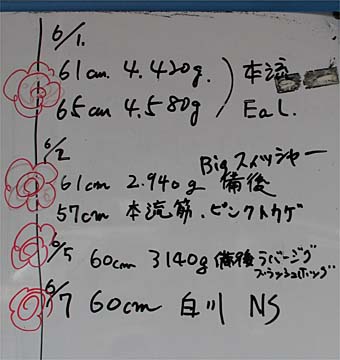 6/1.
61cm. 4.420g.
65cm 4.580g
本流
Eal.
6/2
Bigスイッシャー
61cm 2.940g 備後
57cm 本流筋.ピンクトカゲ
6/5 60cm 3140g 備後 ラバージグ
6/7 60cm 白川 NS